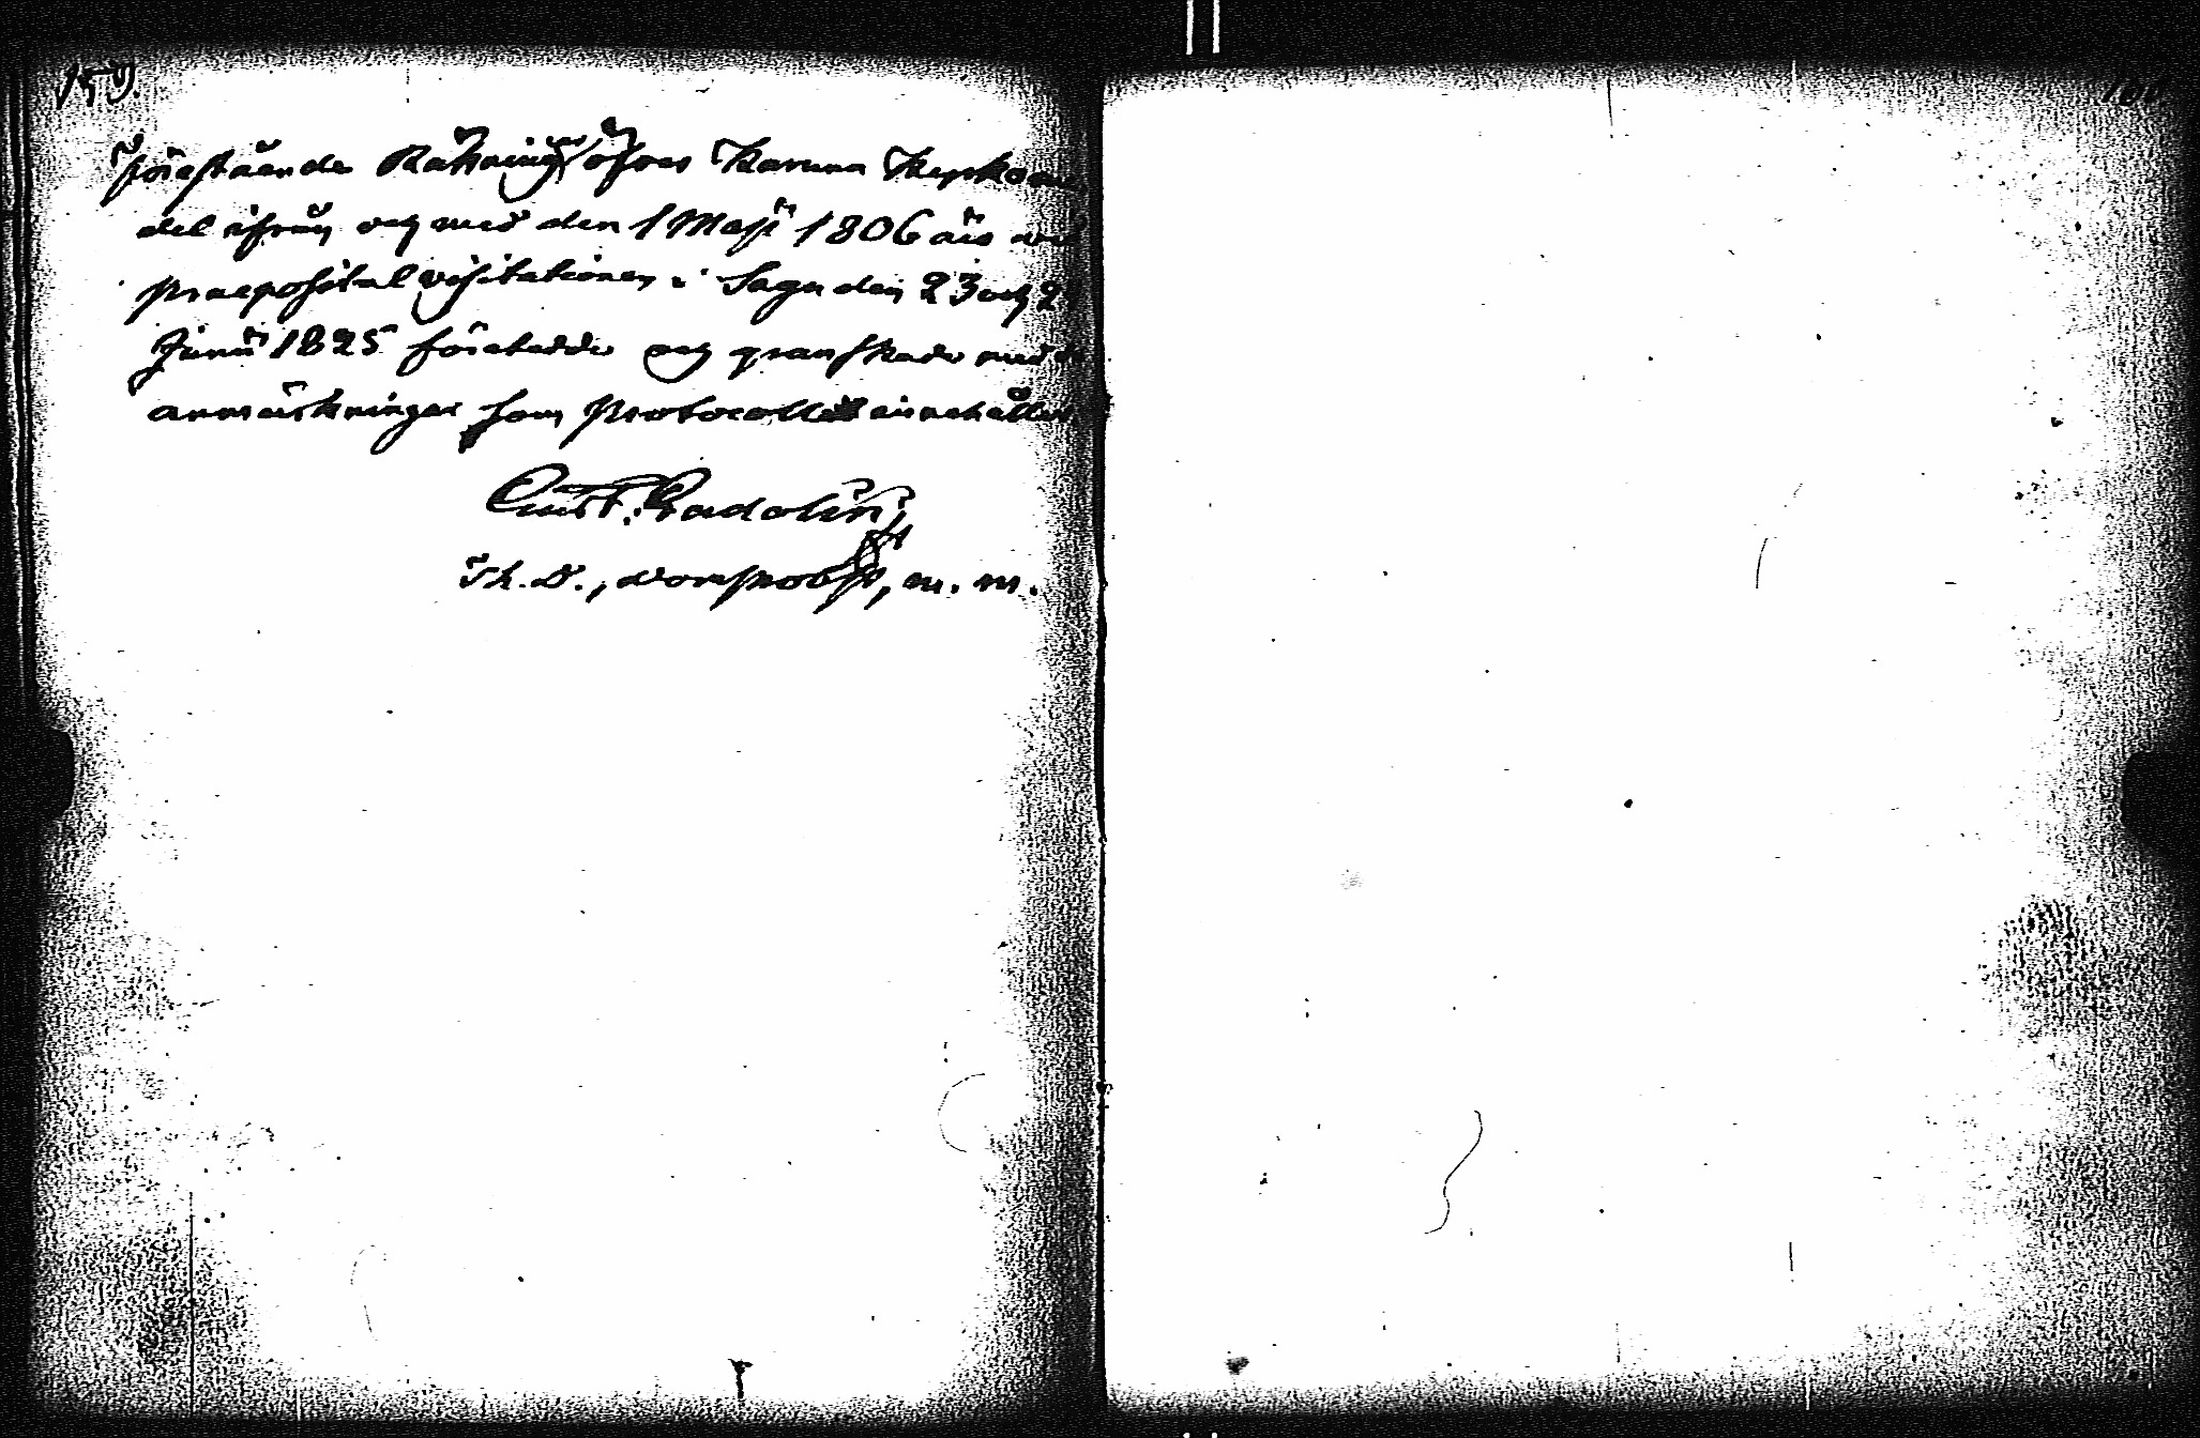 159.
Förestående Räkning öfver Karuna Kyrko
del ifrån och med den 1 Maji 1806 äro
praeposital visitationen i Sagu den 23 och
Junii 1825 företedde och granskade med
anmärkningar som Protocollet innehåller
Gust. Gadolin,
Th. D., domprobst, m. m.
160